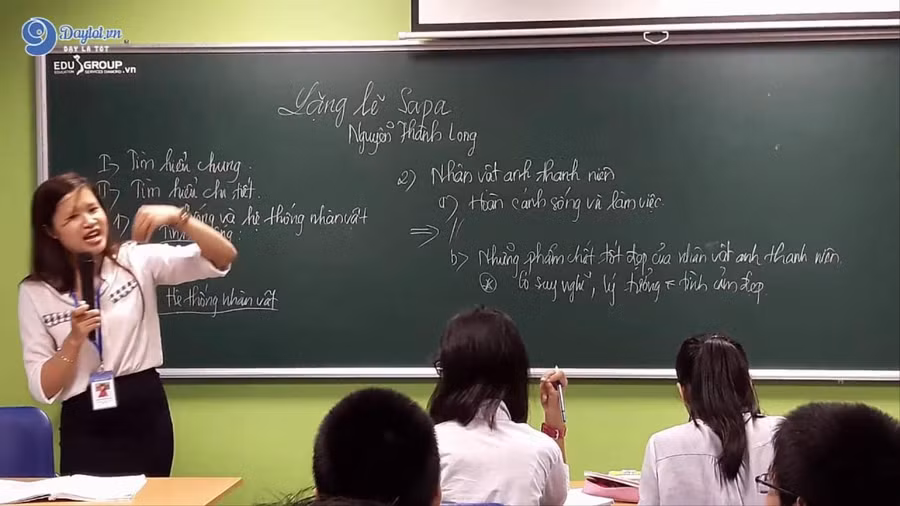 9 Daytot.vn
DAY LA TOT
EDU GROUP.vn
EDUCATION SERVICES DIAMOND
Lặng lẽ Sapa
Nguyễn Thành Long
I) Tìm hiểu chung.
II) Tìm hiểu chi tiết.
1) thống và hệ thống nhân vật
Tình
Hệ thống nhân vật
2) Nhân vật anh thanh niên
a) Hoàn cảnh sống và làm việc
=> //
b) Những phẩm chất tốt đẹp của nhân vật anh thanh niên.
* Có suy nghĩ, lý tưởng tình cảm đẹp